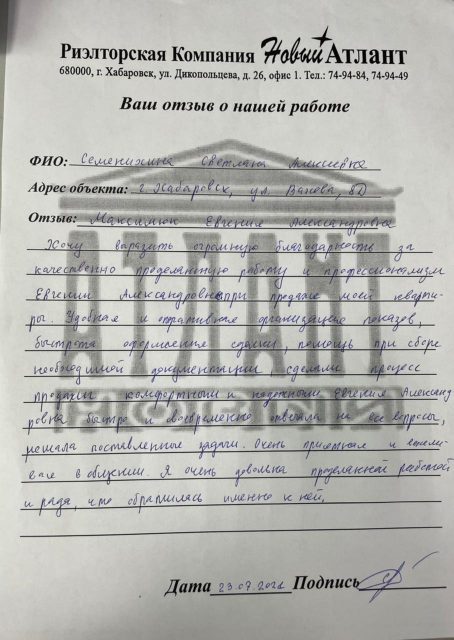 Риэлторская Компания Новый Атлант
680000, г. Хабаровск, ул. Дикопольцева, д. 26, офис 1. Тел.: 74-94-84, 74-94-49
Ваш отзыв о нашей работе
ФИО: Семенихина Светлана Алексеевна
Адрес объекта: г. Хабаровск, ул. 8Д
Отзыв: Максимюк Евгения Александровна
Хочу выразить огромную благодарность за
качественно проделанную работу и профессионализм
Евгении Александровне при продаже моей кварти-
ры. Удобная и оперативная организация показов,
быстрота оформления сделки, помощь при сборе
необходимой документации сделали процесс
продажи комфортным и надежным. Евгения Александ
ровна быстро и своевременно отвечала на все вопросы,
решала поставленные задачи. Очень приятная и вежли-
вая в общении. Я очень довольна проделанной работой
и рада, что обратилась именно к ней.
АТЛАНТ
Дата 23.07.2021 Подпись